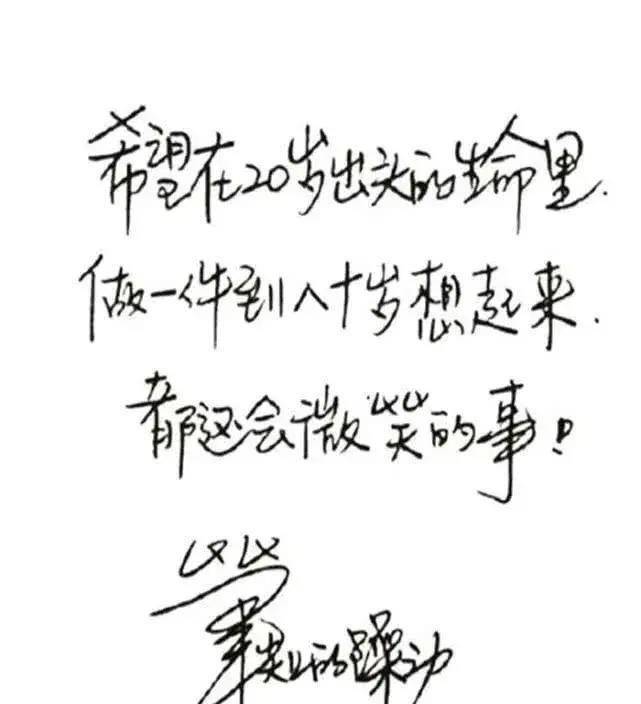 希望在20岁出头的生命里.
做一件到八十岁想起来.
都还会微笑的事!
笔尖上的躁动